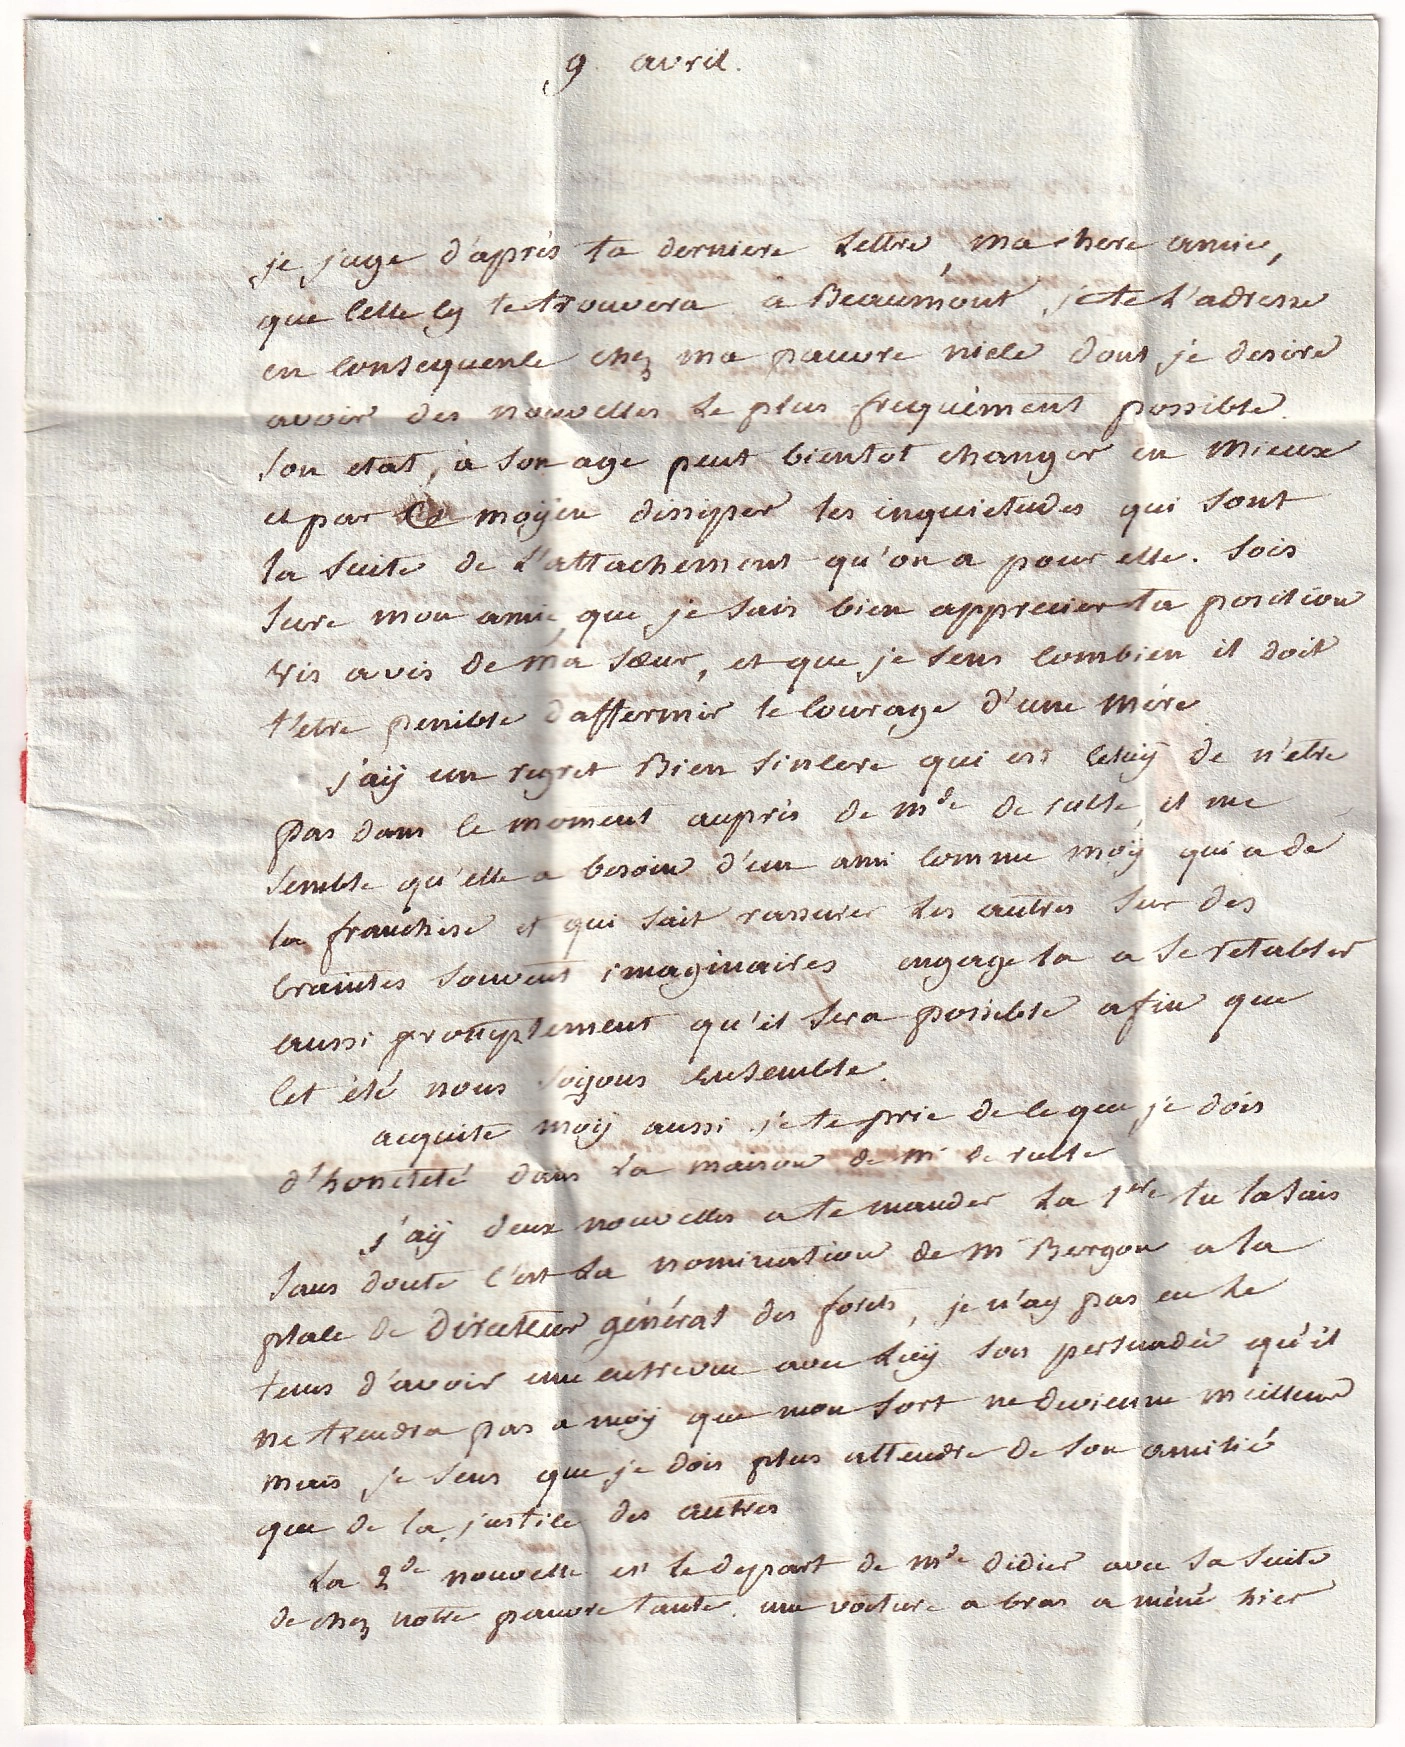 9 avril.
je juge d'après ta derniere Lettre, ma chere amie,
que celle cy te trouvera a Beaumont, je te L'adresse
en consequence chez ma pauvre niece dont je desire
avoir des nouvelles Le plus frequément possible.
son etat, a son age peut bientot changer en mieux
et par ce moÿen dissiper les inquietudes qui sont
la suite de L'attachement qu'on a pour elle. sois
sure mon amie, que je sais bien apprecier ta position
vis a vis de ma sœur, et que je sens combien il doit
t'etre penible d'affermir le courage d'une mére.
j'aÿ un regret Bien sincere qui est celuÿ de n'etre
pas dans le moment auprès de mde de rulle, il me
semble qu'elle a besoin d'un ami comme moÿ qui a de
la franchise et qui sait rassurer Les autres sur des
craintes souvent imaginaires engage la a se retablir
aussi promptement qu'il sera possible afin que
cet été nous soÿons ensemble.
acquite moÿ aussi je te prie de ce que je dois
d'honêteté dans La maison de mr de rulle
j'aÿ deux nouvelles a te mander La 1ere tu la sais
sans doute c'est La nomination de mr Bergon a la
place de Directeur général des forets, je n'ay pas eu Le
tems d'avoir une entrevue avec Luÿ sois persuadée qu'il
ne tiendra pas a moÿ que mon sort ne devienne meilleur
mais je sens que je dois plus attendre de son amitié
que de la justice des autres
La 2de nouvelle est Le depart de mde didier avec sa suite
de chez notre pauvre tante. une voiture a bras a méné hier